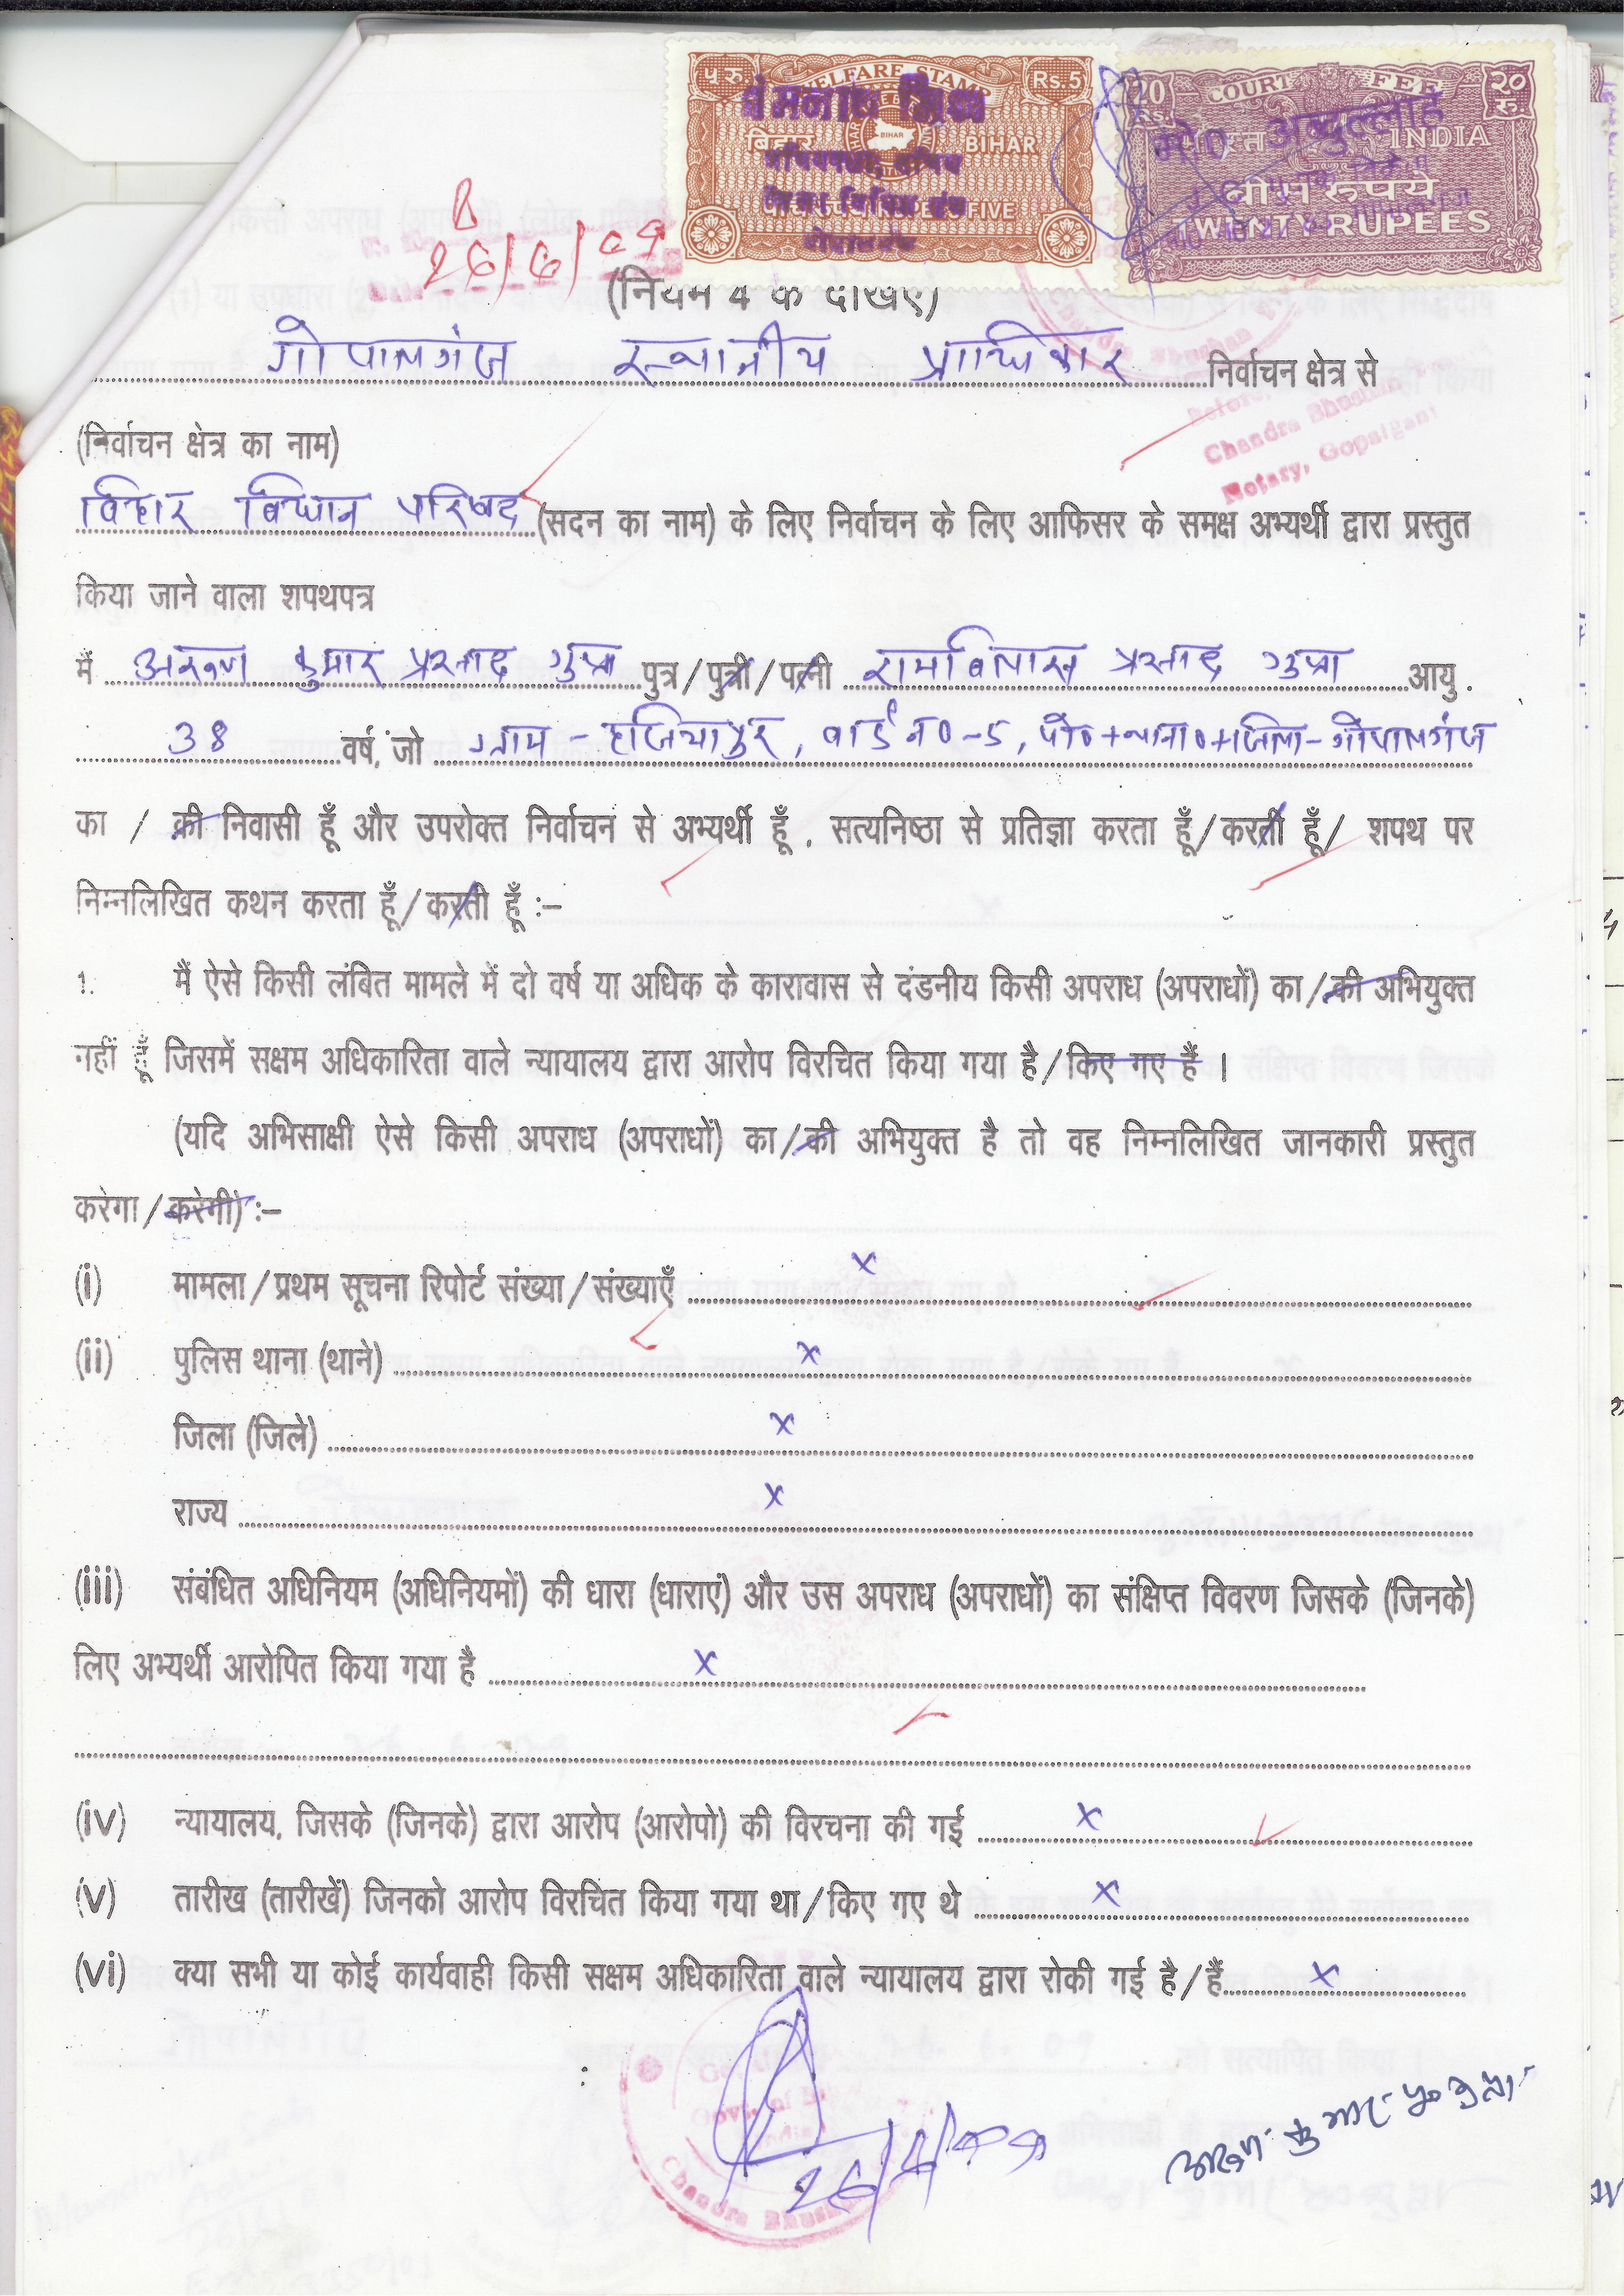 ५ रु. WELFARE STAMP Rs.5
बिहार BIHAR
20 COURT FEE २० रु.
Rs. भारत INDIA
मो0 अब्दुल्लाह
बीस रुपये
TWENTY RUPEES
26/6/09
(नियम 4 क देखिए)
गोपालगंज स्थानीय प्राधिकार निर्वाचन क्षेत्र से
(निर्वाचन क्षेत्र का नाम)
Chandra Bhushan
Notary, Gopalganj
बिहार विधान परिषद (सदन का नाम) के लिए निर्वाचन के लिए आफिसर के समक्ष अभ्यर्थी द्वारा प्रस्तुत
किया जाने वाला शपथपत्र
मैं अरुण कुमार प्रसाद गुप्ता पुत्र/पुत्री/पत्नी रामविलास प्रसाद गुप्ता आयु
38 वर्ष, जो ग्राम-हजियापुर, वार्ड न0-5, पो0+थाना0+जिला-गोपालगंज
का / की निवासी हूँ और उपरोक्त निर्वाचन से अभ्यर्थी हूँ, सत्यनिष्ठा से प्रतिज्ञा करता हूँ/करती हूँ/ शपथ पर
निम्नलिखित कथन करता हूँ/करती हूँ :–
1. मैं ऐसे किसी लंबित मामले में दो वर्ष या अधिक के कारावास से दंडनीय किसी अपराध (अपराधों) का/की अभियुक्त
नहीं हूँ जिसमें सक्षम अधिकारिता वाले न्यायालय द्वारा आरोप विरचित किया गया है/किए गए हैं ।
(यदि अभिसाक्षी ऐसे किसी अपराध (अपराधों) का/की अभियुक्त है तो वह निम्नलिखित जानकारी प्रस्तुत
करेगा/करेगी) :–
(i) मामला/प्रथम सूचना रिपोर्ट संख्या/संख्याएँ x
(ii) पुलिस थाना (थाने) x
जिला (जिले) x
राज्य x
(iii) संबंधित अधिनियम (अधिनियमों) की धारा (धाराएं) और उस अपराध (अपराधों) का संक्षिप्त विवरण जिसके (जिनके)
लिए अभ्यर्थी आरोपित किया गया है x
(iv) न्यायालय, जिसके (जिनके) द्वारा आरोप (आरोपो) की विरचना की गई x
(v) तारीख (तारीखें) जिनको आरोप विरचित किया गया था/किए गए थे x
(vi) क्या सभी या कोई कार्यवाही किसी सक्षम अधिकारिता वाले न्यायालय द्वारा रोकी गई है/हैं x
26/6/09
अरुण कुमार प्र0 गुप्ता